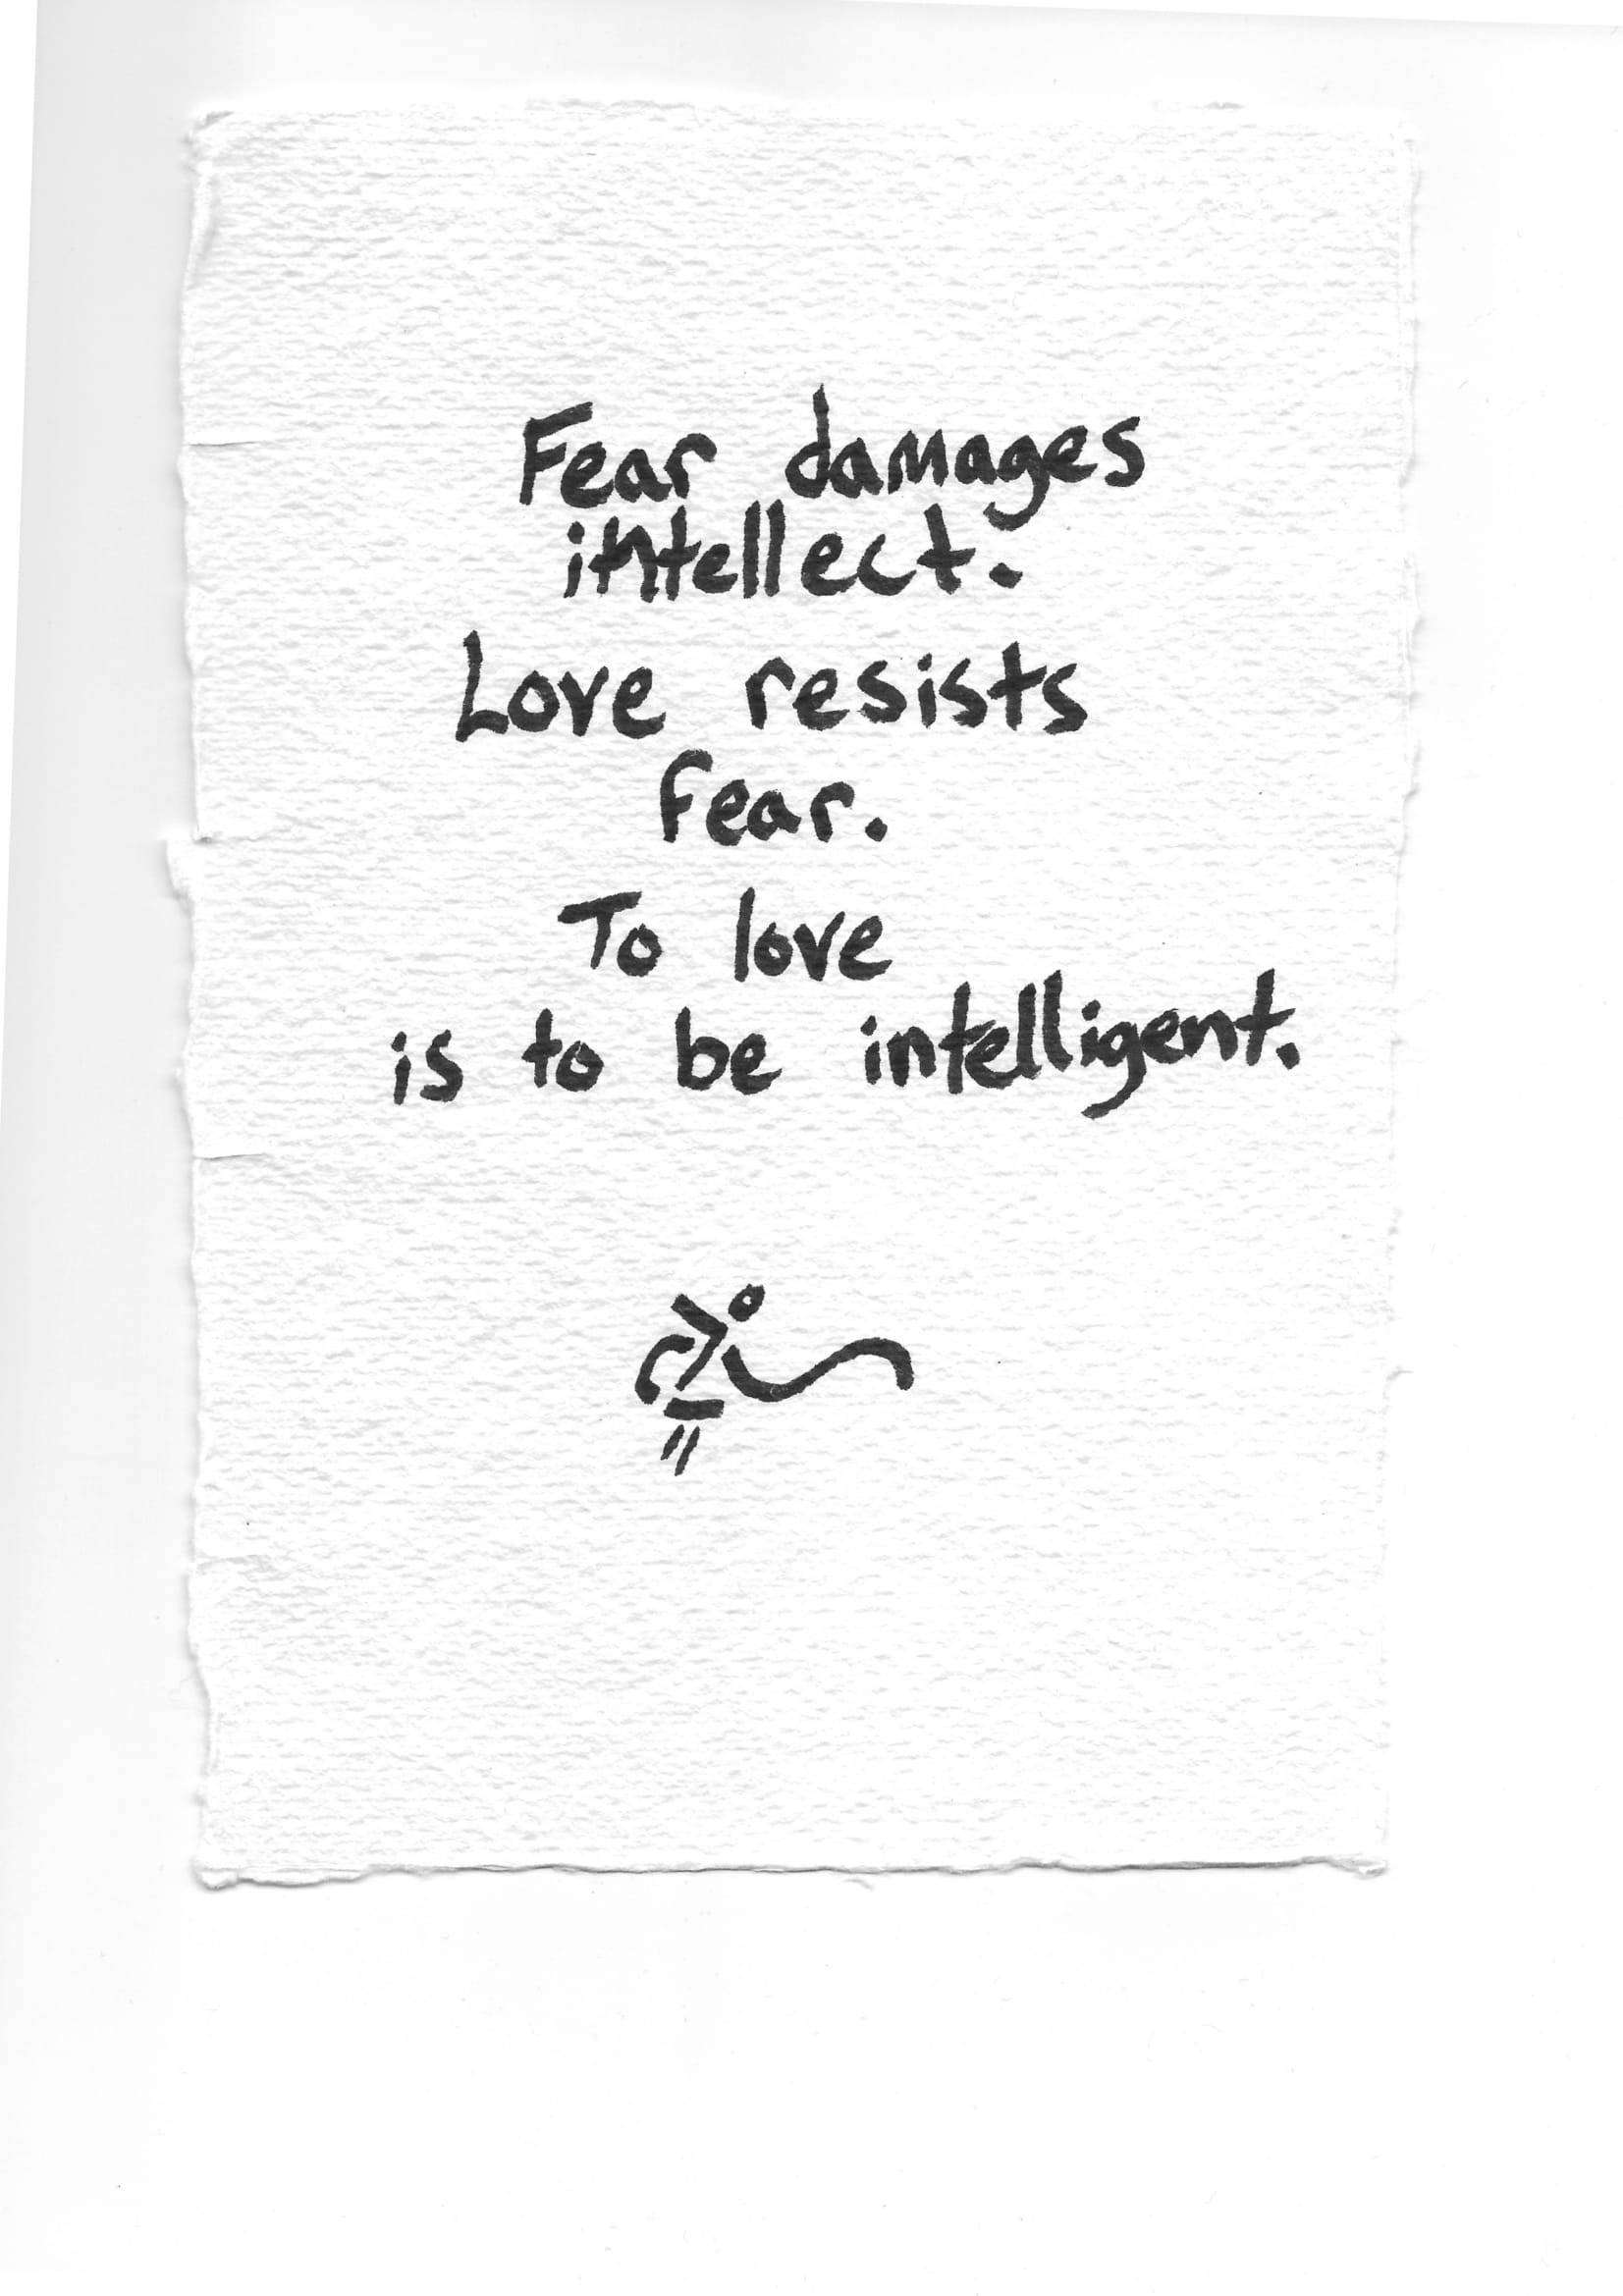 Fear damages
intellect.
Love resists
fear.
To love
is to be intelligent.